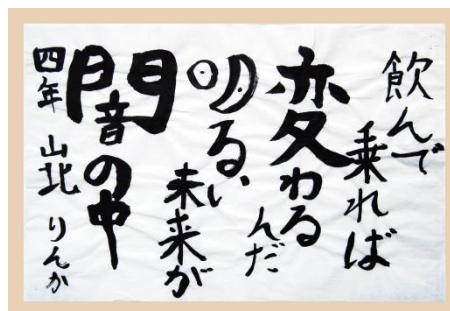 飲んで
乗れば
変わる
んだ
明るい
未来が
闇の中
四年 山北 りんか